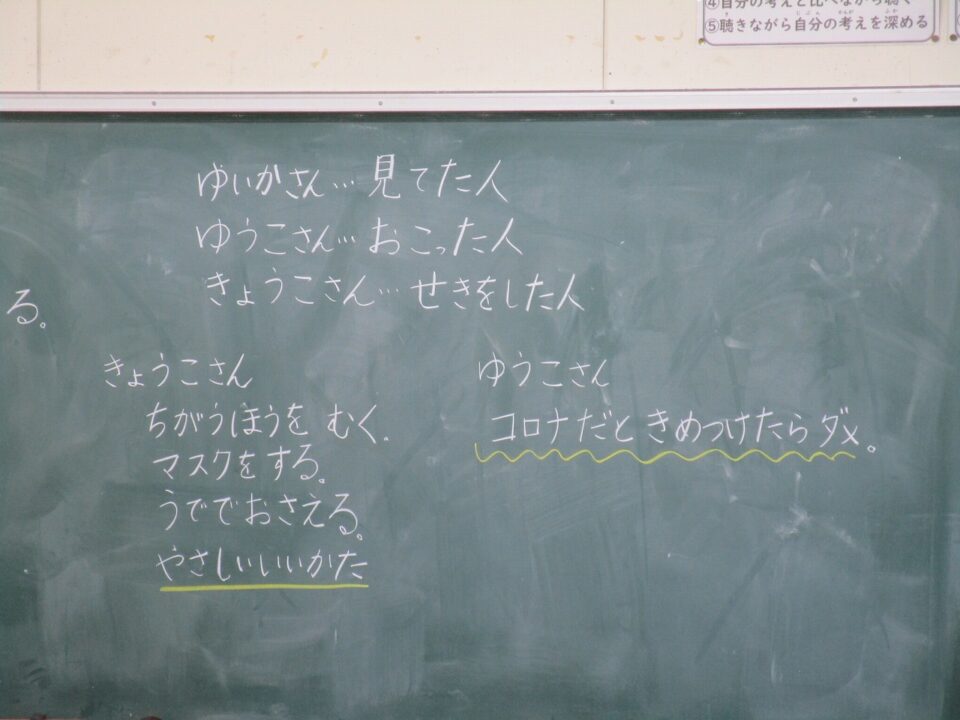 ④自分の考えと比べながら聴く
⑤聴きながら自分の考えを深める
ゆいかさん…見てた人
ゆうこさん…おこった人
きょうこさん…せきをした人
る。
きょうこさん
ちがうほうを むく.
マスクをする。
うででおさえる。
やさしいいいかた
ゆうこさん
コロナだときめつけたらダメ。